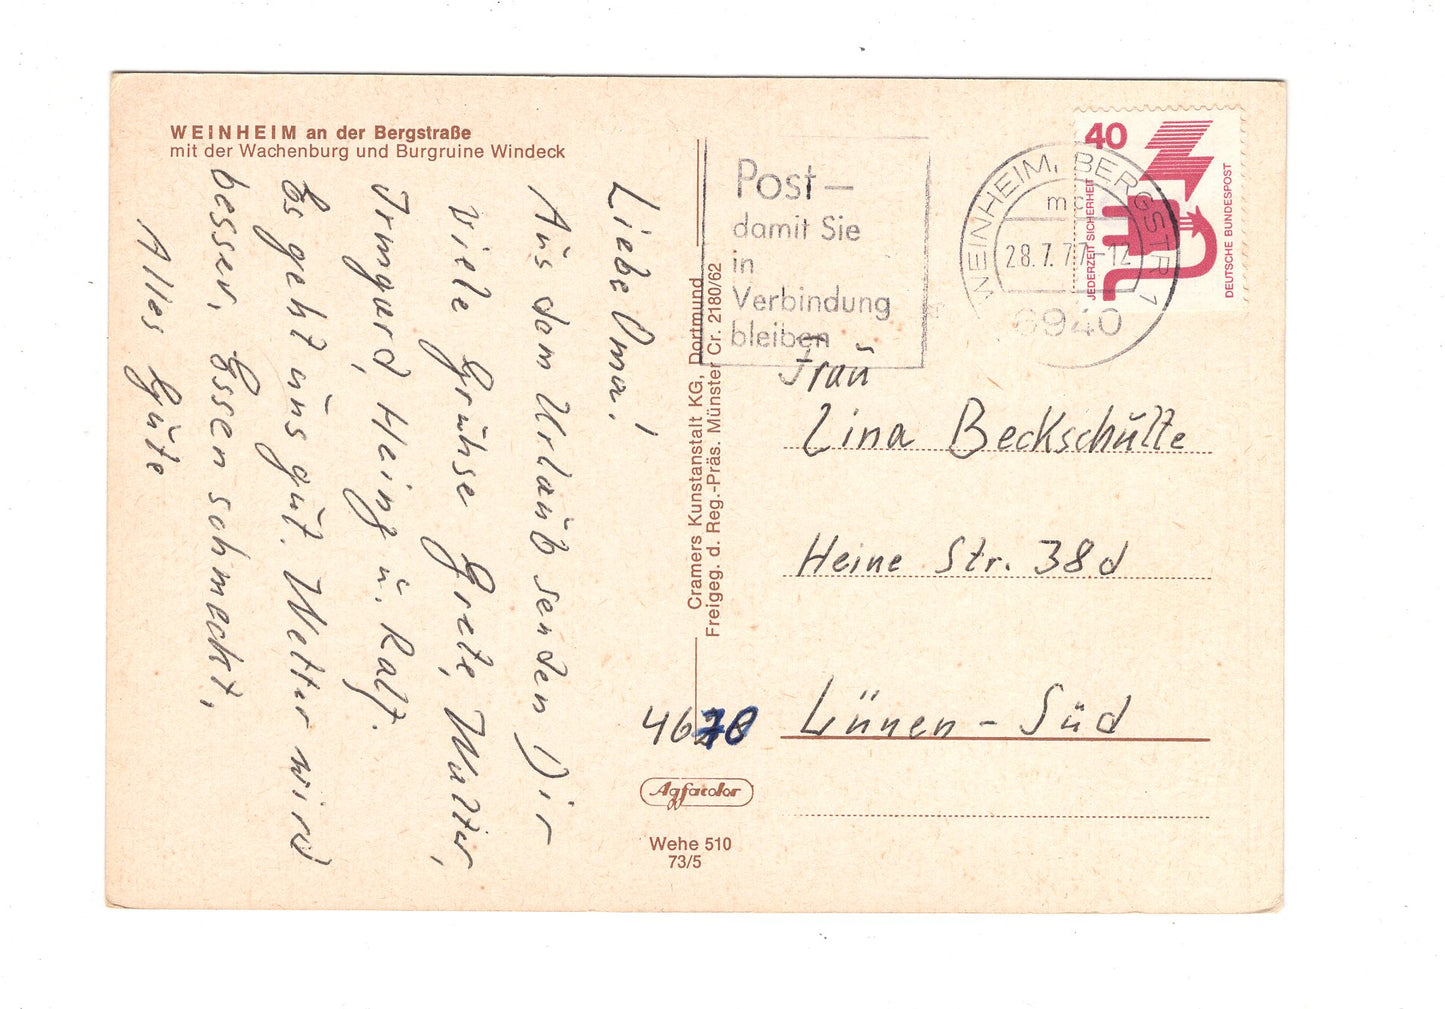 WEINHEIM an der Bergstraße
mit der Wachenburg und Burgruine Windeck
Liebe Oma!
Aus dem Urlaub senden Dir
viele Grühse Grete, Walter,
Irmgard, Heinz u. Ralf.
Es geht uns gut. Wetter wird
besser, Essen schmeckt,
Alles Gute
Cramers Kunstanstalt KG, Dortmund
Freigeg. d. Reg.-Präs. Münster Cr. 2180/62
Post –
damit Sie
in
Verbindung
bleiben
WEINHEIM, BERGSTR 1
28.7.77-12
6940
40
JEDERZEIT SICHERHEIT
DEUTSCHE BUNDESPOST
Frau
Lina Beckschulte
Heine Str. 38d
4670 Lünen - Süd
Agfacolor
Wehe 510
73/5